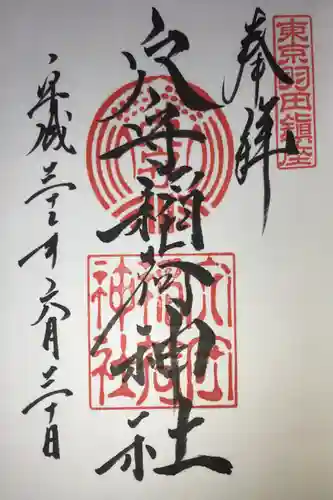 東京羽田鎮座
奉拝
穴守稲荷神社
穴守稲荷神社
平成三十年六月三十日